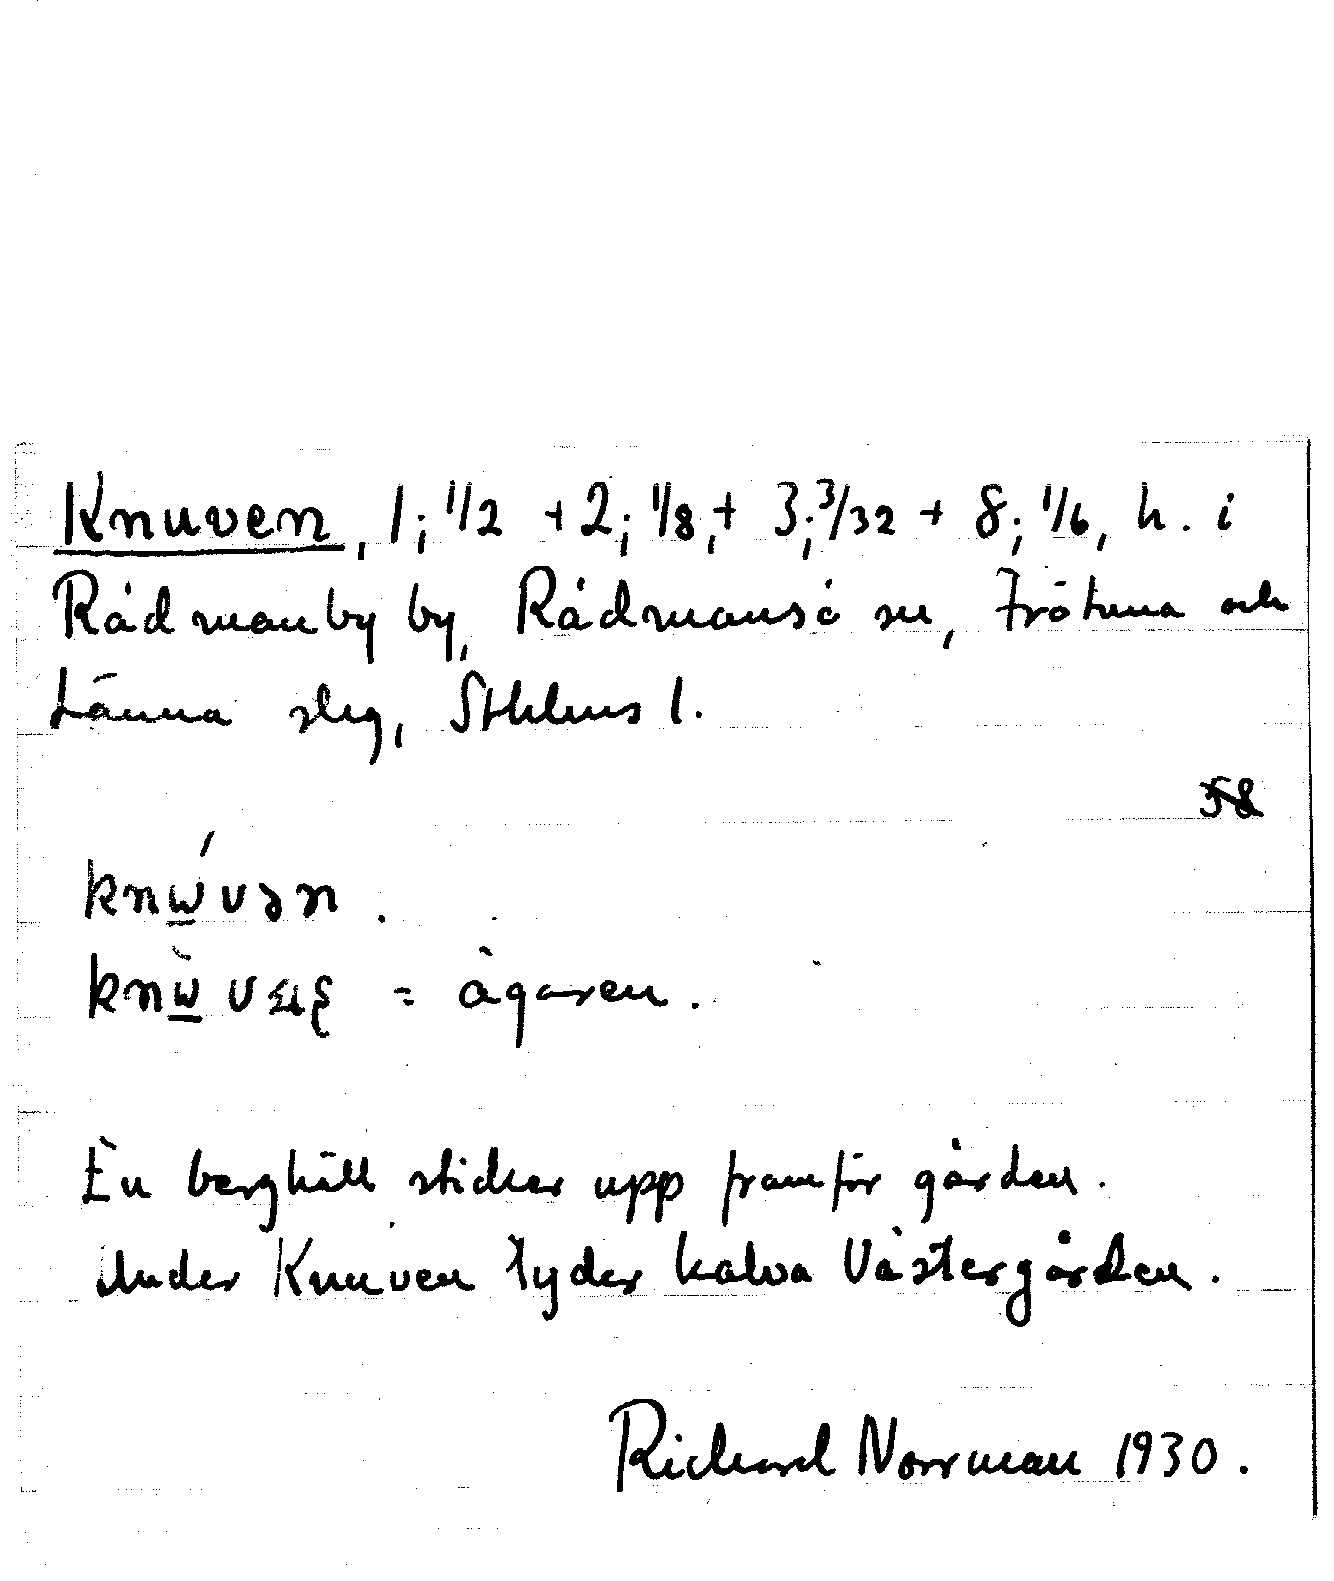 Knuven, 1; 1/2 + 2; 1/8, + 3; 3/32 + 8; 1/6, h. i
Rådmanby by, Rådmansö sn, Frötuna och
Länna slg, Sthlms l.
58
knẃvən.
= ägaren.
En berghäll sticker upp framför gården.
Under Knuven lyder halva Västergården.
Richard Norrman 1930.